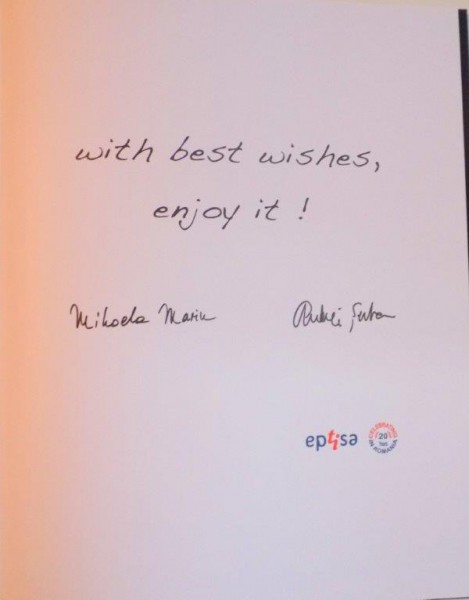 with best wishes,
enjoy it !
Mihaela Marin
eptisa
CELEBRATING
20
IN ROMANIA